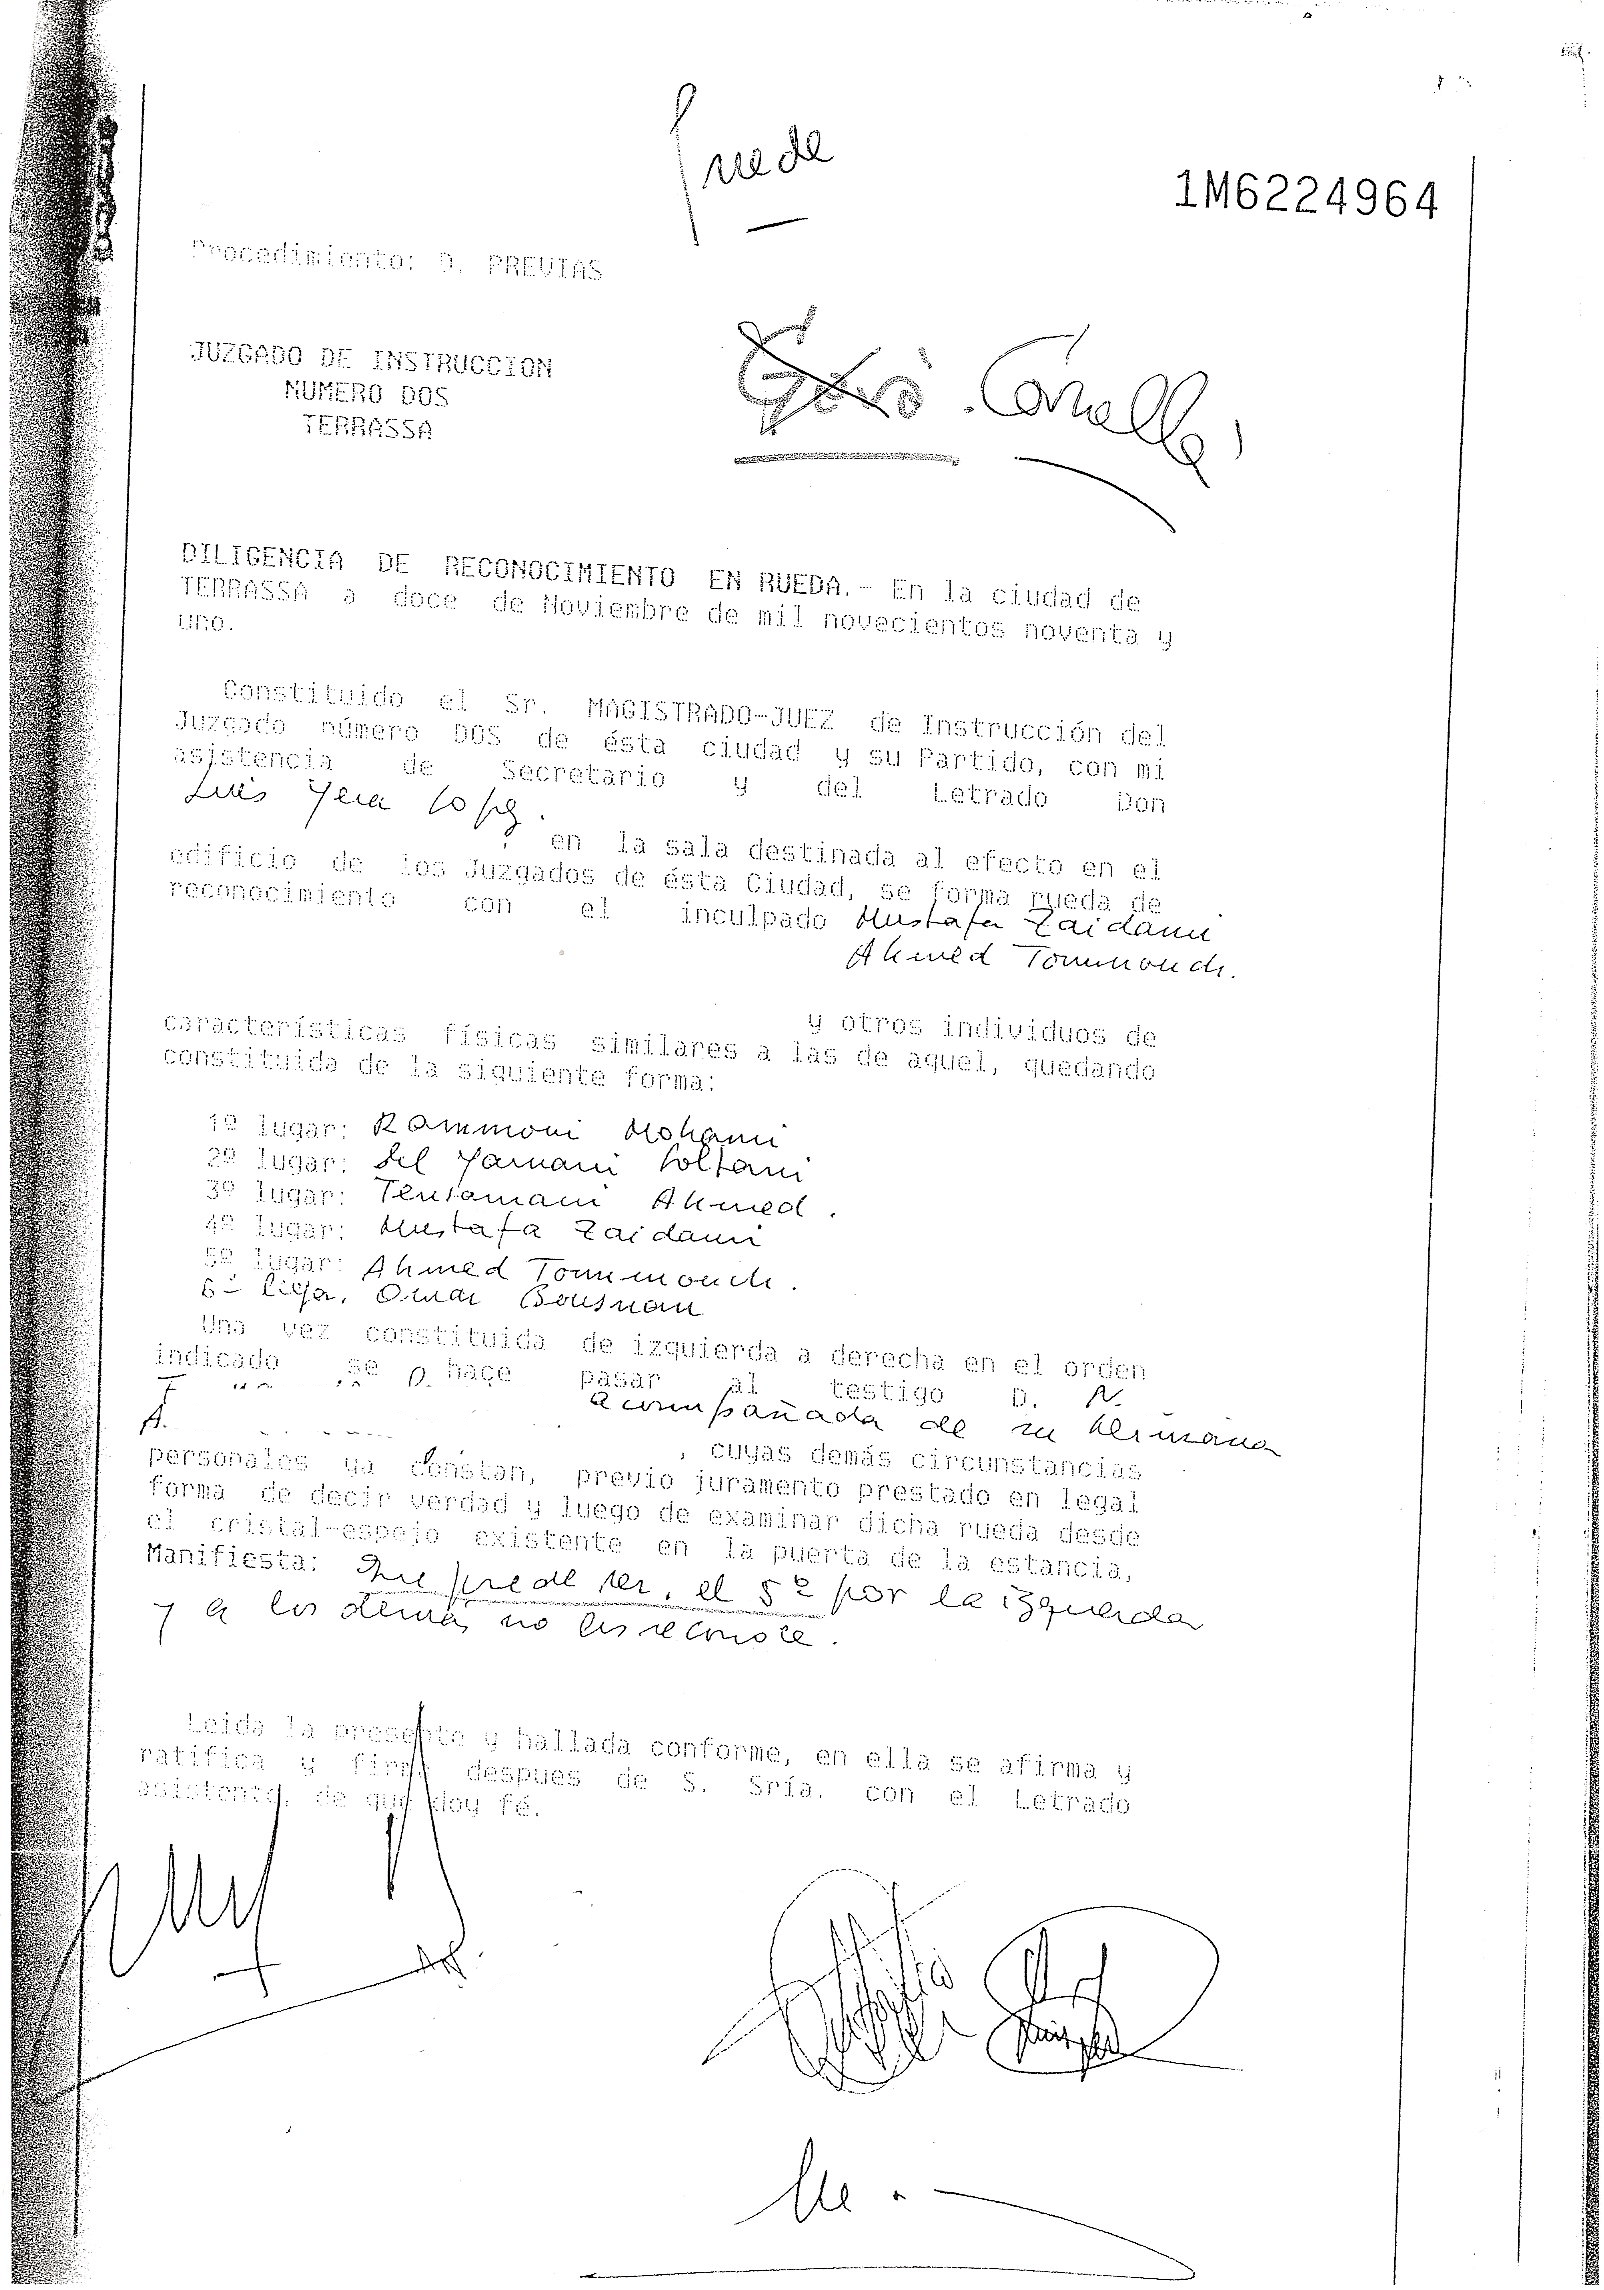 Puede
1M6224964
Procedimiento: D. PREVIAS
JUZGADO DE INSTRUCCION
NUMERO DOS
TERRASSA
DILIGENCIA DE RECONOCIMIENTO EN RUEDA.- En la ciudad de
TERRASSA a doce de Noviembre de mil novecientos noventa y
uno.
Constituido el Sr. MAGISTRADO-JUEZ de Instrucción del
Juzgado número DOS de ésta ciudad y su Partido, con mi
asistencia de Secretario y del Letrado Don
Luis
, en la sala destinada al efecto en el
edificio de los Juzgados de ésta Ciudad, se forma rueda de
reconocimiento con el inculpado Mustafa Zaidami
Ahmed Tommouch.
y otros individuos de
características físicas similares a las de aquel, quedando
constituida de la siguiente forma:
1º lugar: Rammoui Mohami
2º lugar: Soltani
3º lugar: Tensamani Ahmed.
4º lugar: Mustafa Zaidami
5º lugar: Ahmed Tommouch.
6º lugar, Omar
Una vez constituida de izquierda a derecha en el orden
indicado se hace pasar al testigo D. N.
acompañada de su hermana
A.
, cuyas demás circunstancias
personales ya constan, previo juramento prestado en legal
forma de decir verdad y luego de examinar dicha rueda desde
el cristal-espejo existente en la puerta de la estancia,
Manifiesta: Que puede ser, el 5º por la izquierda
y a los demás no les reconoce.
Leida la presente y hallada conforme, en ella se afirma y
ratifica y firma despues de S. Sría. con el Letrado
asistente, de que doy fé.